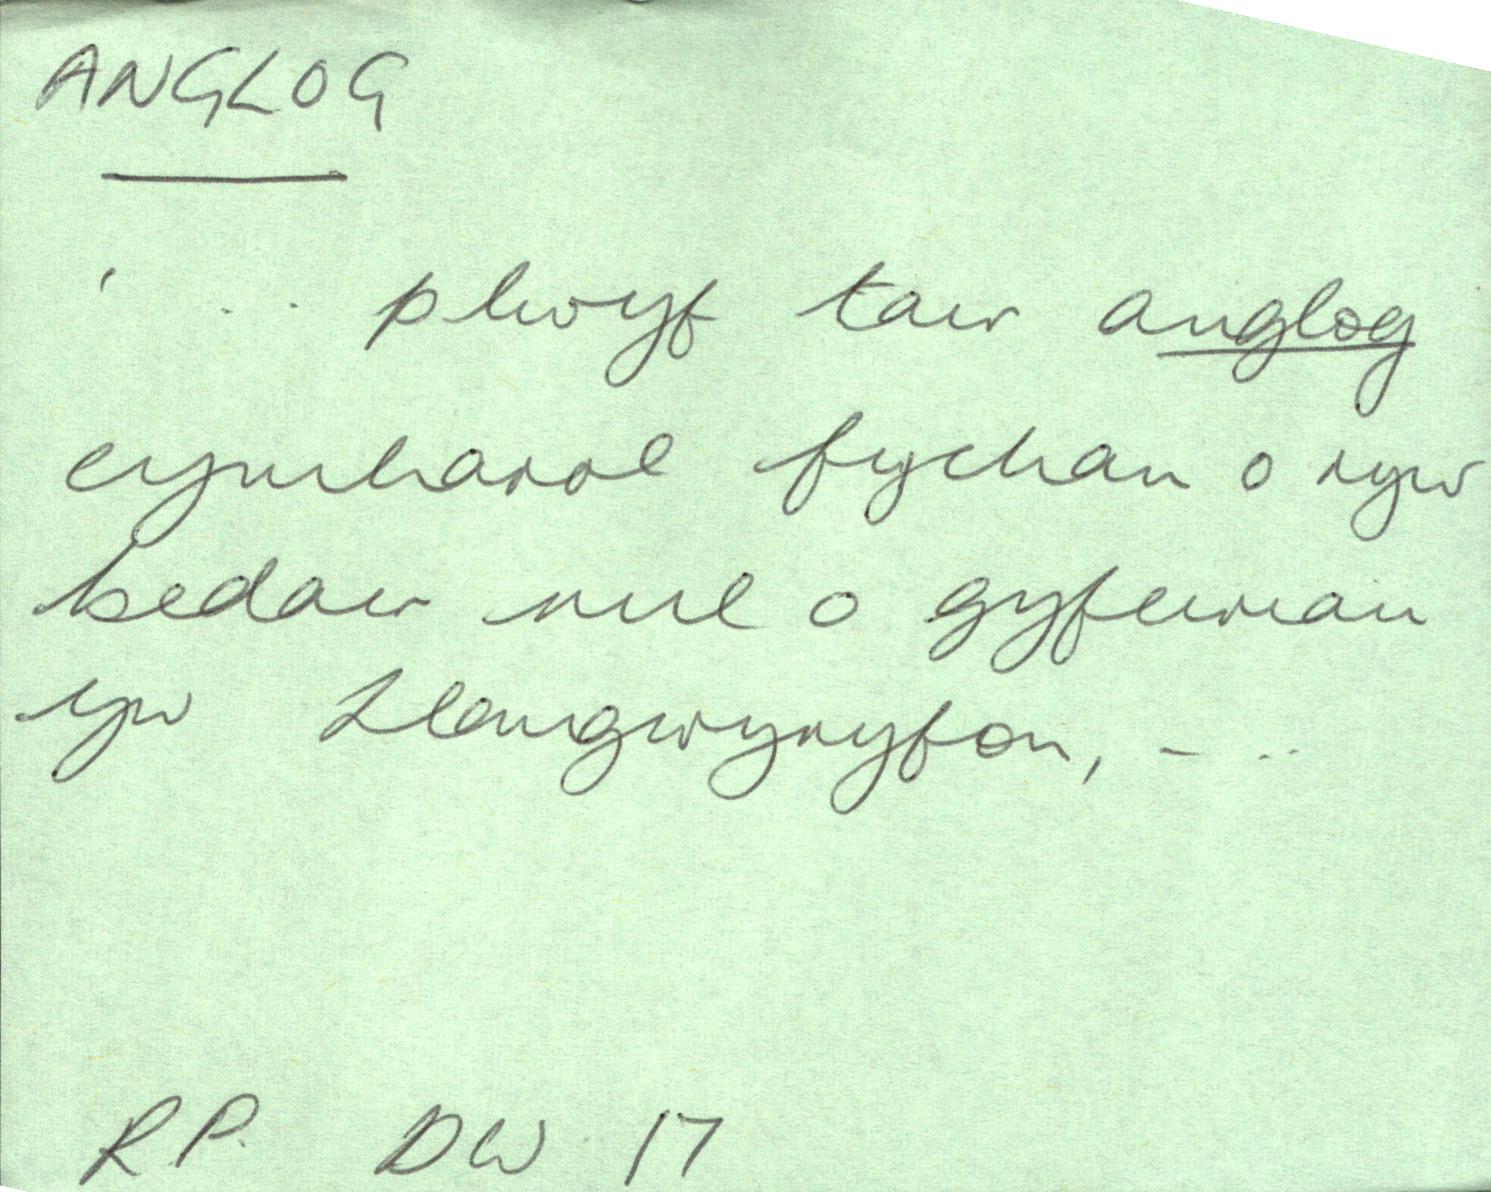 ANGLOG
' . . plwyf tair anglog
cymharol fychan o ryw
bedair mil o gyfeiriau
yw Llangwyryfon, - . .
R.P. DW 17